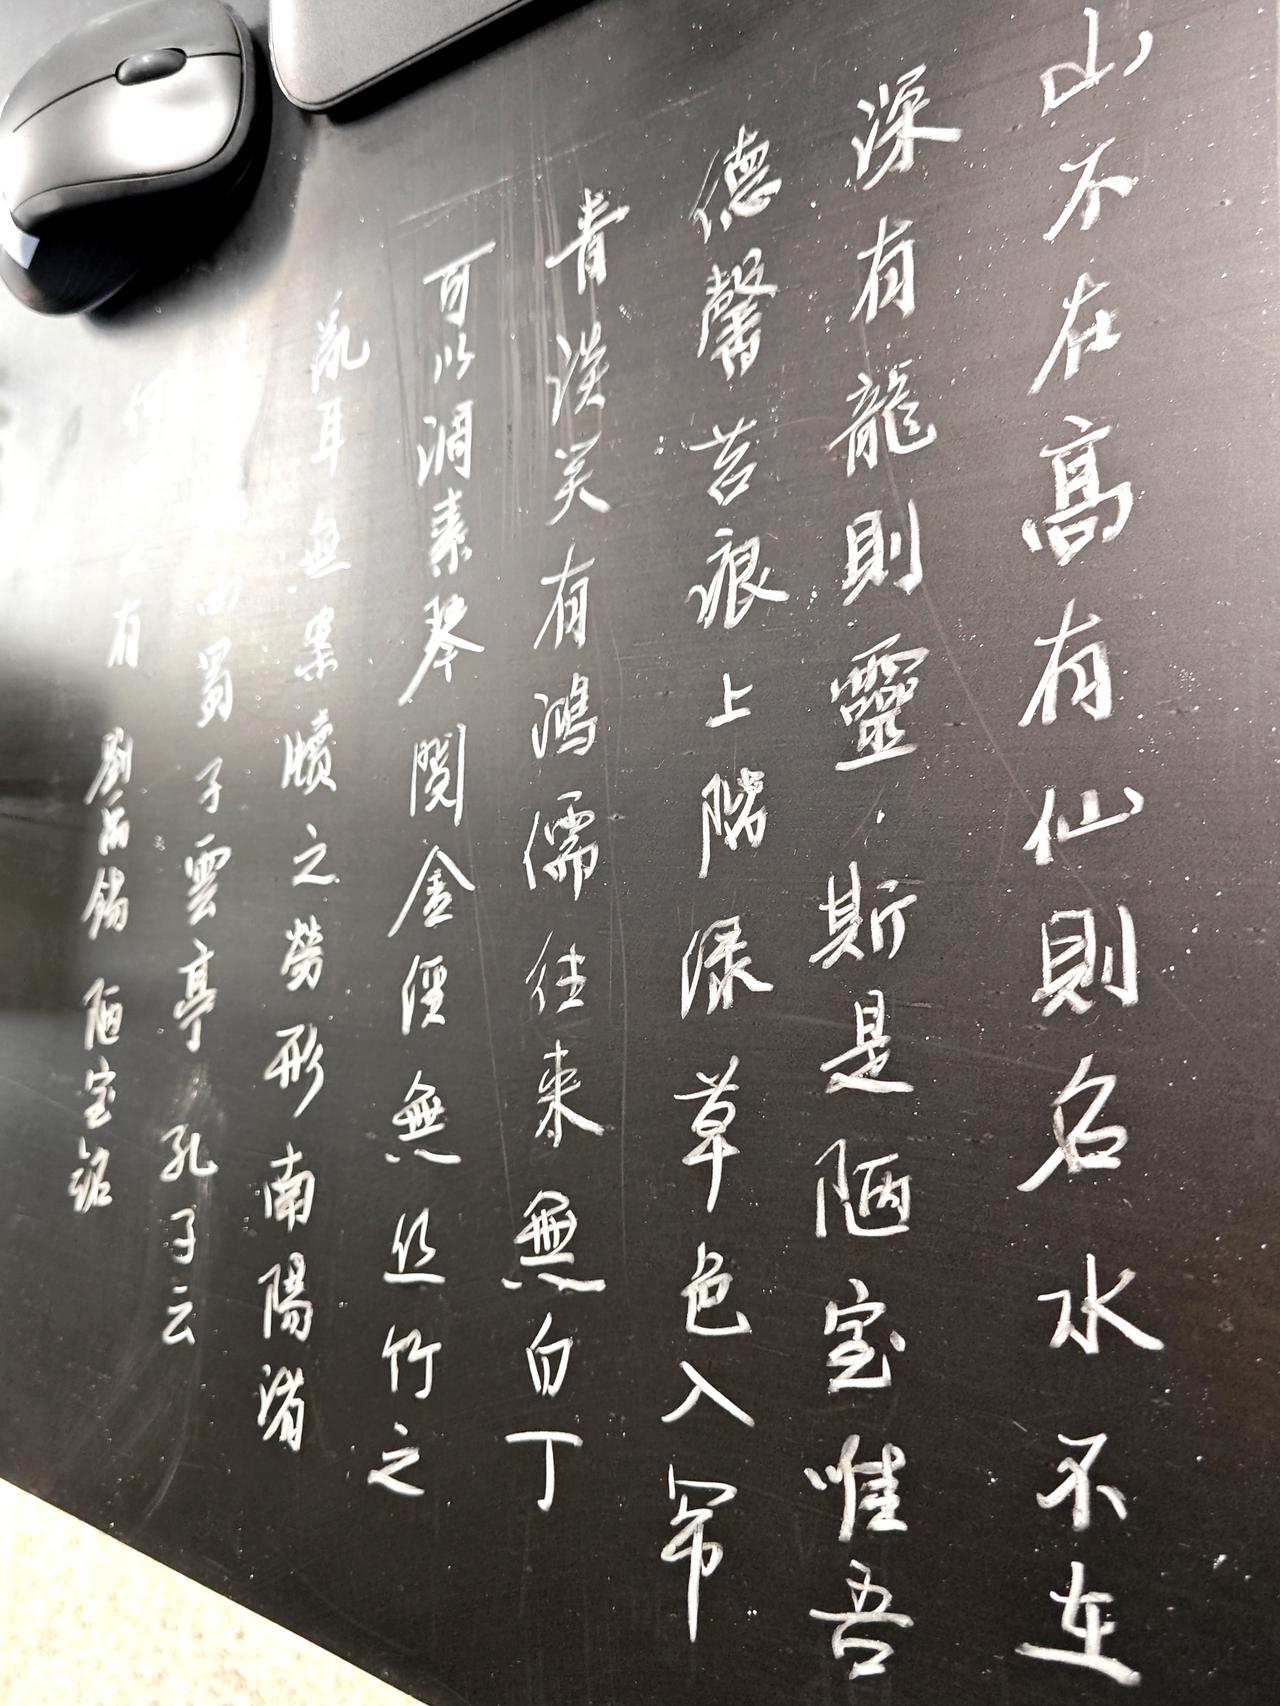 山不在高有仙則名水不在
深有龍則靈斯是陋室唯吾
德馨苔痕上階綠草色入帘
青談笑有鴻儒往来無白丁
可以調素琴閱金經無丝竹之
亂耳無案牘之勞形南陽諸
西蜀子雲亭孔子云
何之有 劉禹錫 陋室銘